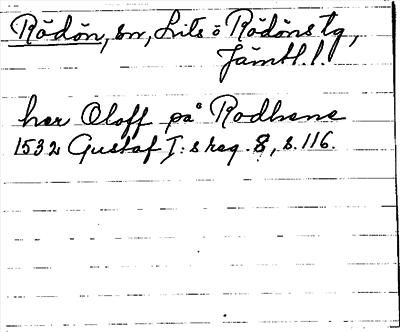 Rödön, sn, Lits o Rödöns tg,
Jämtl. l.
her Oloff på Rodhene
1532 Gustaf I:s reg. 8, s. 116.